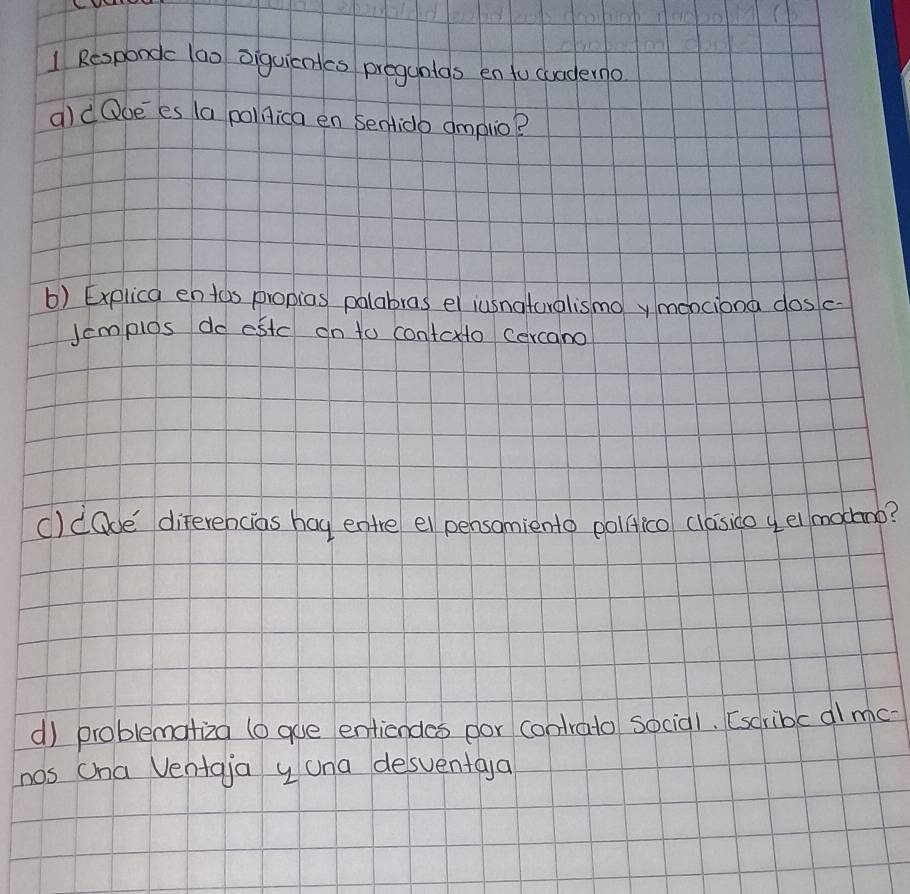 1 Responde las siguientes preguntas en tu cuaderno
a) ¿Que es la política en sentido amplio?
b) Explica en tus propias palabras el iusnaturalismo y menciona dos e-
jemplos de este en tu contexto cercano
c) ¿Qué diferencias hay entre el pensamiento político clásico y el moderno?
d) problematiza lo que entiendes por contrato social. Escribe al me-
nos una ventaja y una desventaja